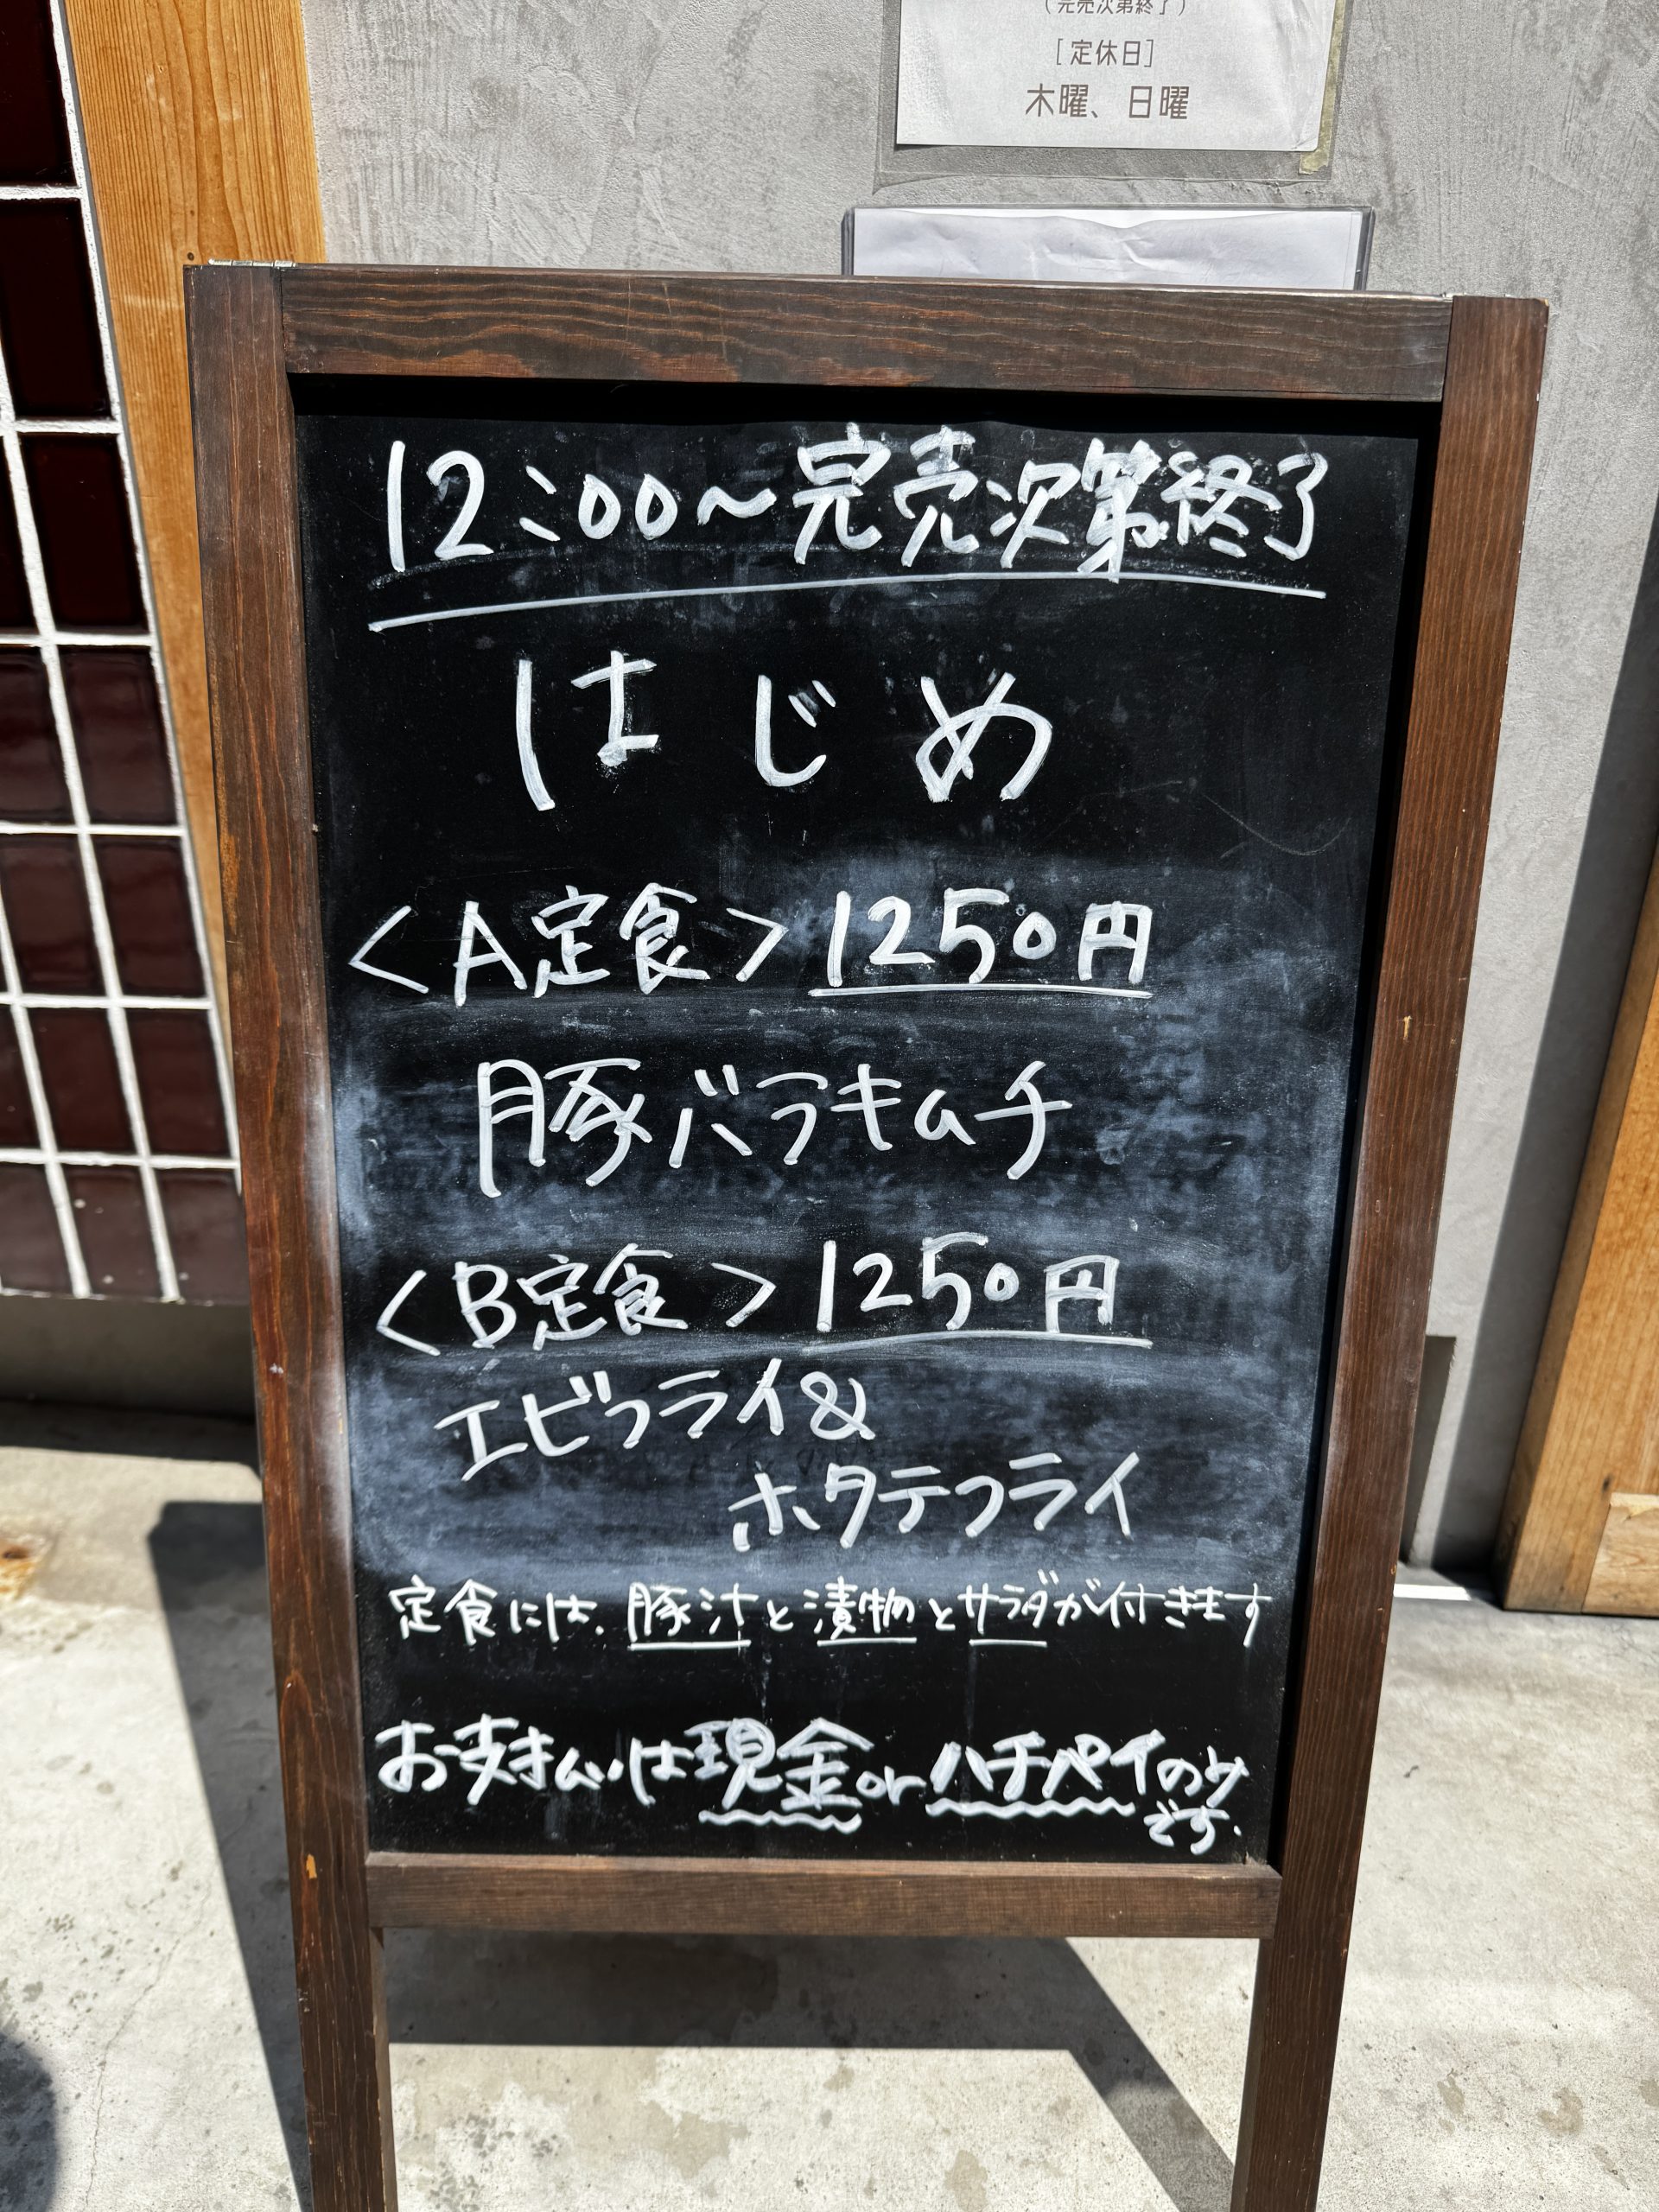 （完売次第終了）
[定休日]
木曜、日曜
12:00～完売次第終了
はじめ
<A定食> 1250円
豚バラキムチ
<B定食> 1250円
エビフライ&
ホタテフライ
定食には、豚汁と漬物とサラダが付きます
お支払いは現金orハチペイのみ
です.